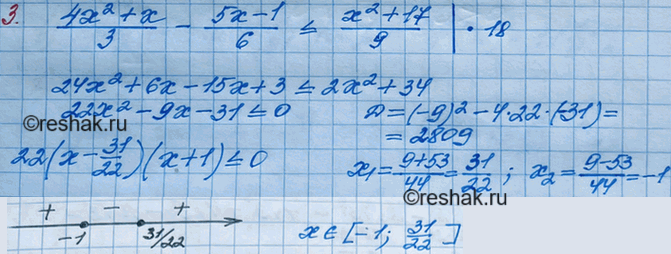 3. (4x² + x)/3 − (5x − 1)/6 ≤ (x² + 17)/9 | · 18
24x² + 6x − 15x + 3 ≤ 2x² + 34
©reshak.ru
22x² − 9x − 31 ≤ 0 D = (−9)² − 4 · 22 · (−31) =
= 2809
22(x − 31/22)(x + 1) ≤ 0 x₁ = (9+53)/44 = 31/22 ; x₂ = (9−53)/44 = −1
©reshak.ru
+ − +
−1 31/22 x ∈ [−1; 31/22]